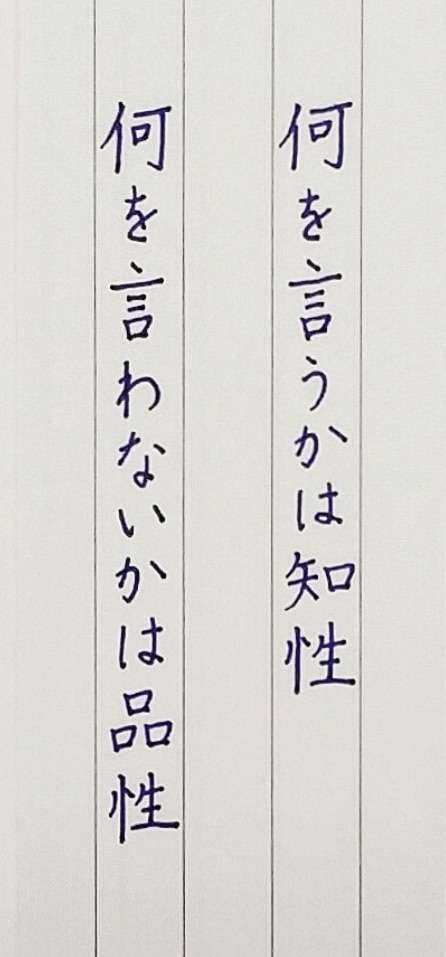 何を言うかは知性
何を言わないかは品性